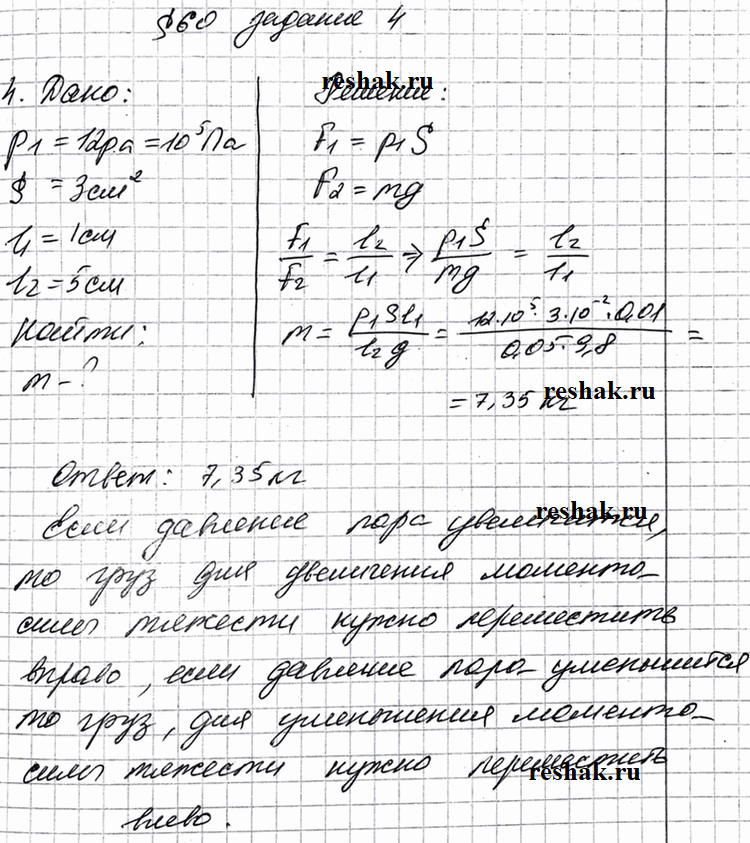 §60 задание 4
4. Дано:
p1 = 12 pa = 10^5 Па
S = 3 см^2
l1 = 1 см
l2 = 5 см
Найти:
m - ?
reshak.ru
Решение:
F1 = p1S
F2 = mg
F1/F2 = l2/l1 => p1S/mg = l2/l1
m = p1Sl1/l2g = 12·10^5·3·10^-2·0,01/0,05·9,8 =
reshak.ru
= 7,35 кг
Ответ: 7,35 кг
reshak.ru
Если давление пара увеличится,
то груз для увеличения момента
силы тяжести нужно переместить
вправо, если давление пара уменьшится
то груз, для уменьшения момента
силы тяжести нужно переместить
reshak.ru
влево.